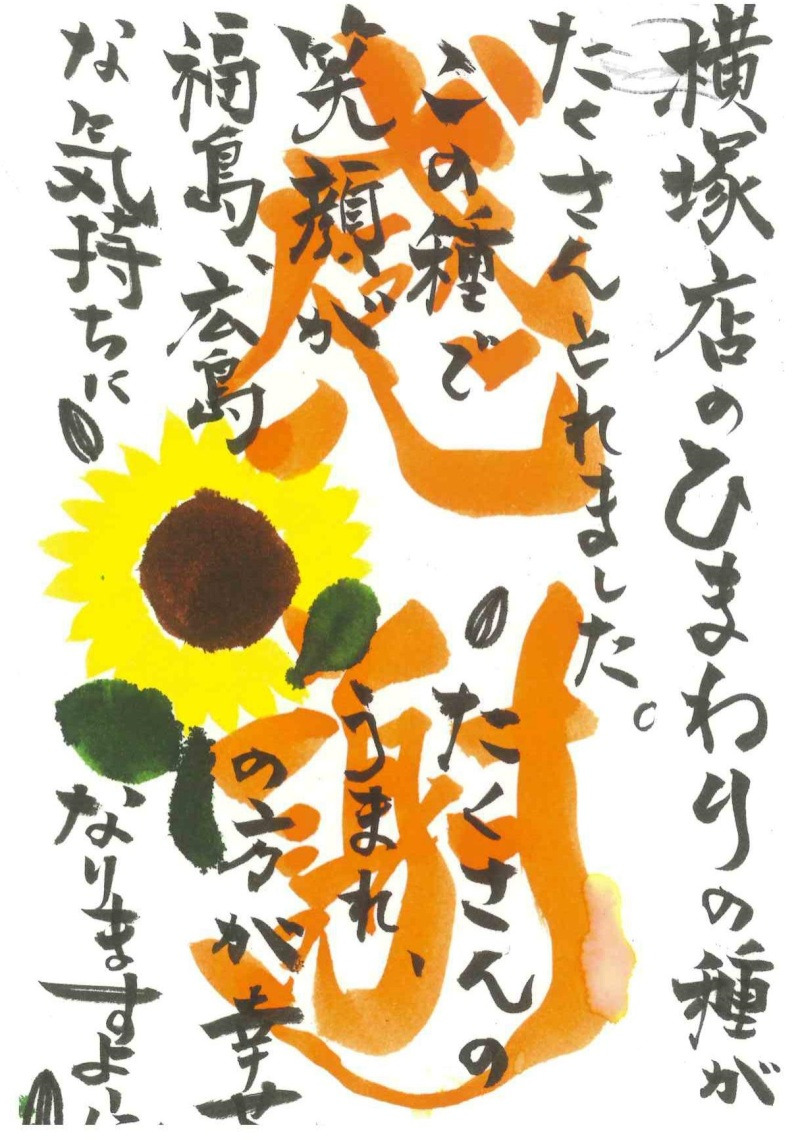 横塚店のひまわりの種が
たくさんとれました。
この種で たくさんの
笑顔が うまれ、
福島、広島 の方が幸せ
な気持ちに なりますよう
感謝